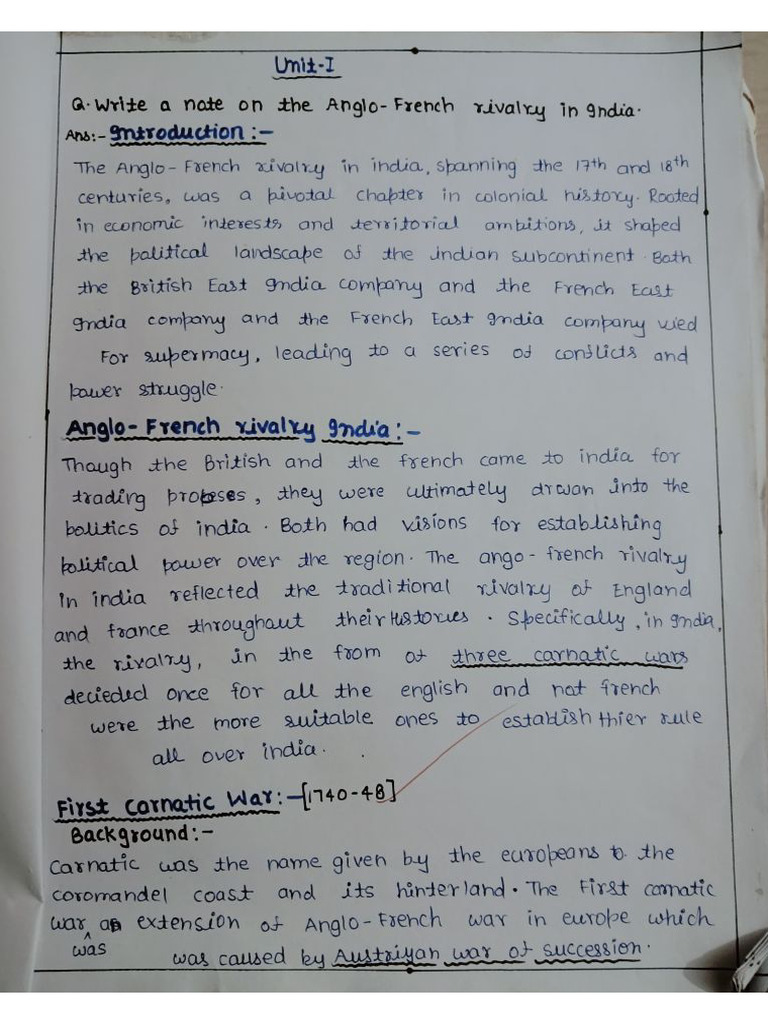 Unit-I
Q. Write a note on the Anglo-French rivalry in India.
Ans:- Introduction :-
The Anglo-French rivalry in india, spanning the 17th and 18th
centuries, was a pivotal chapter in colonial history. Rooted
in economic interests and territorial ambitions, it shaped
the political landscape of the indian subcontinent. Both
the British East India company and the French East
India company and the French East India company vied
For supermacy, leading to a series of conflicts and
power struggle.
Anglo-French rivalry India:-
Though the British and the french came to india for
trading proposes, they were ultimately drwan into the
politics of india. Both had visions for establishing
political power over the region. The ango-french rivalry
In india reflected the traditional rivalry of England
and france throughout their Histories. Specifically, in India,
the rivalry, in the from of three carnatic wars
decieded once for all the english and not french
were the more suitable ones to establish thier rule
all over india.
First Carnatic War:-[1740-48]
Background:-
Carnatic was the name given by the europeans to the
coromandel coast and its hinterland. The First carnatic
war was an extension of Anglo-French war in europe which
was caused by Austriyan war of succession.